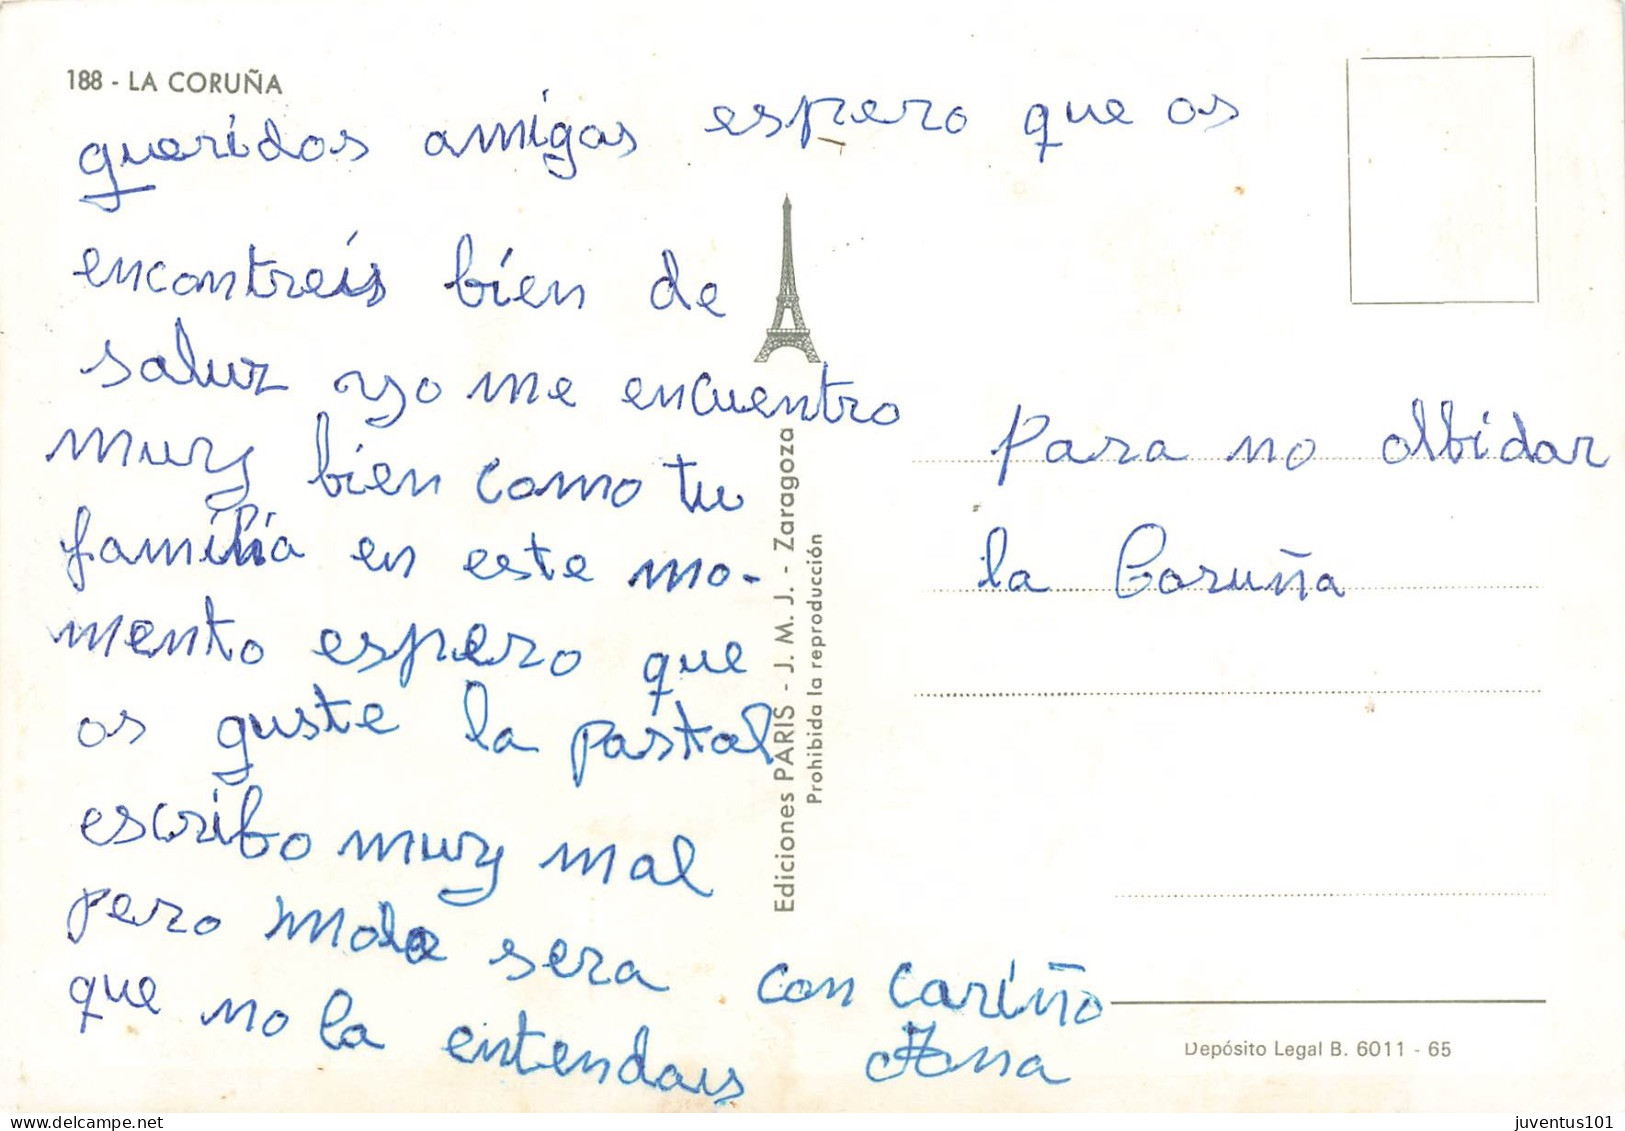 188 - LA CORUÑA
queridos amigas espero que os
encontreis bien de
saluz yo me encuentro
muy bien como tu
familia en este mo-
mento espero que
os guste la postal
escribo muy mal
pero mala sera
que no la entendais
con cariño
Ana
Ediciones PARIS - J. M. J. - Zaragoza
Prohibida la reproducción
Para no olbidar
la Coruña
Depósito Legal B. 6011 - 65
juventus101